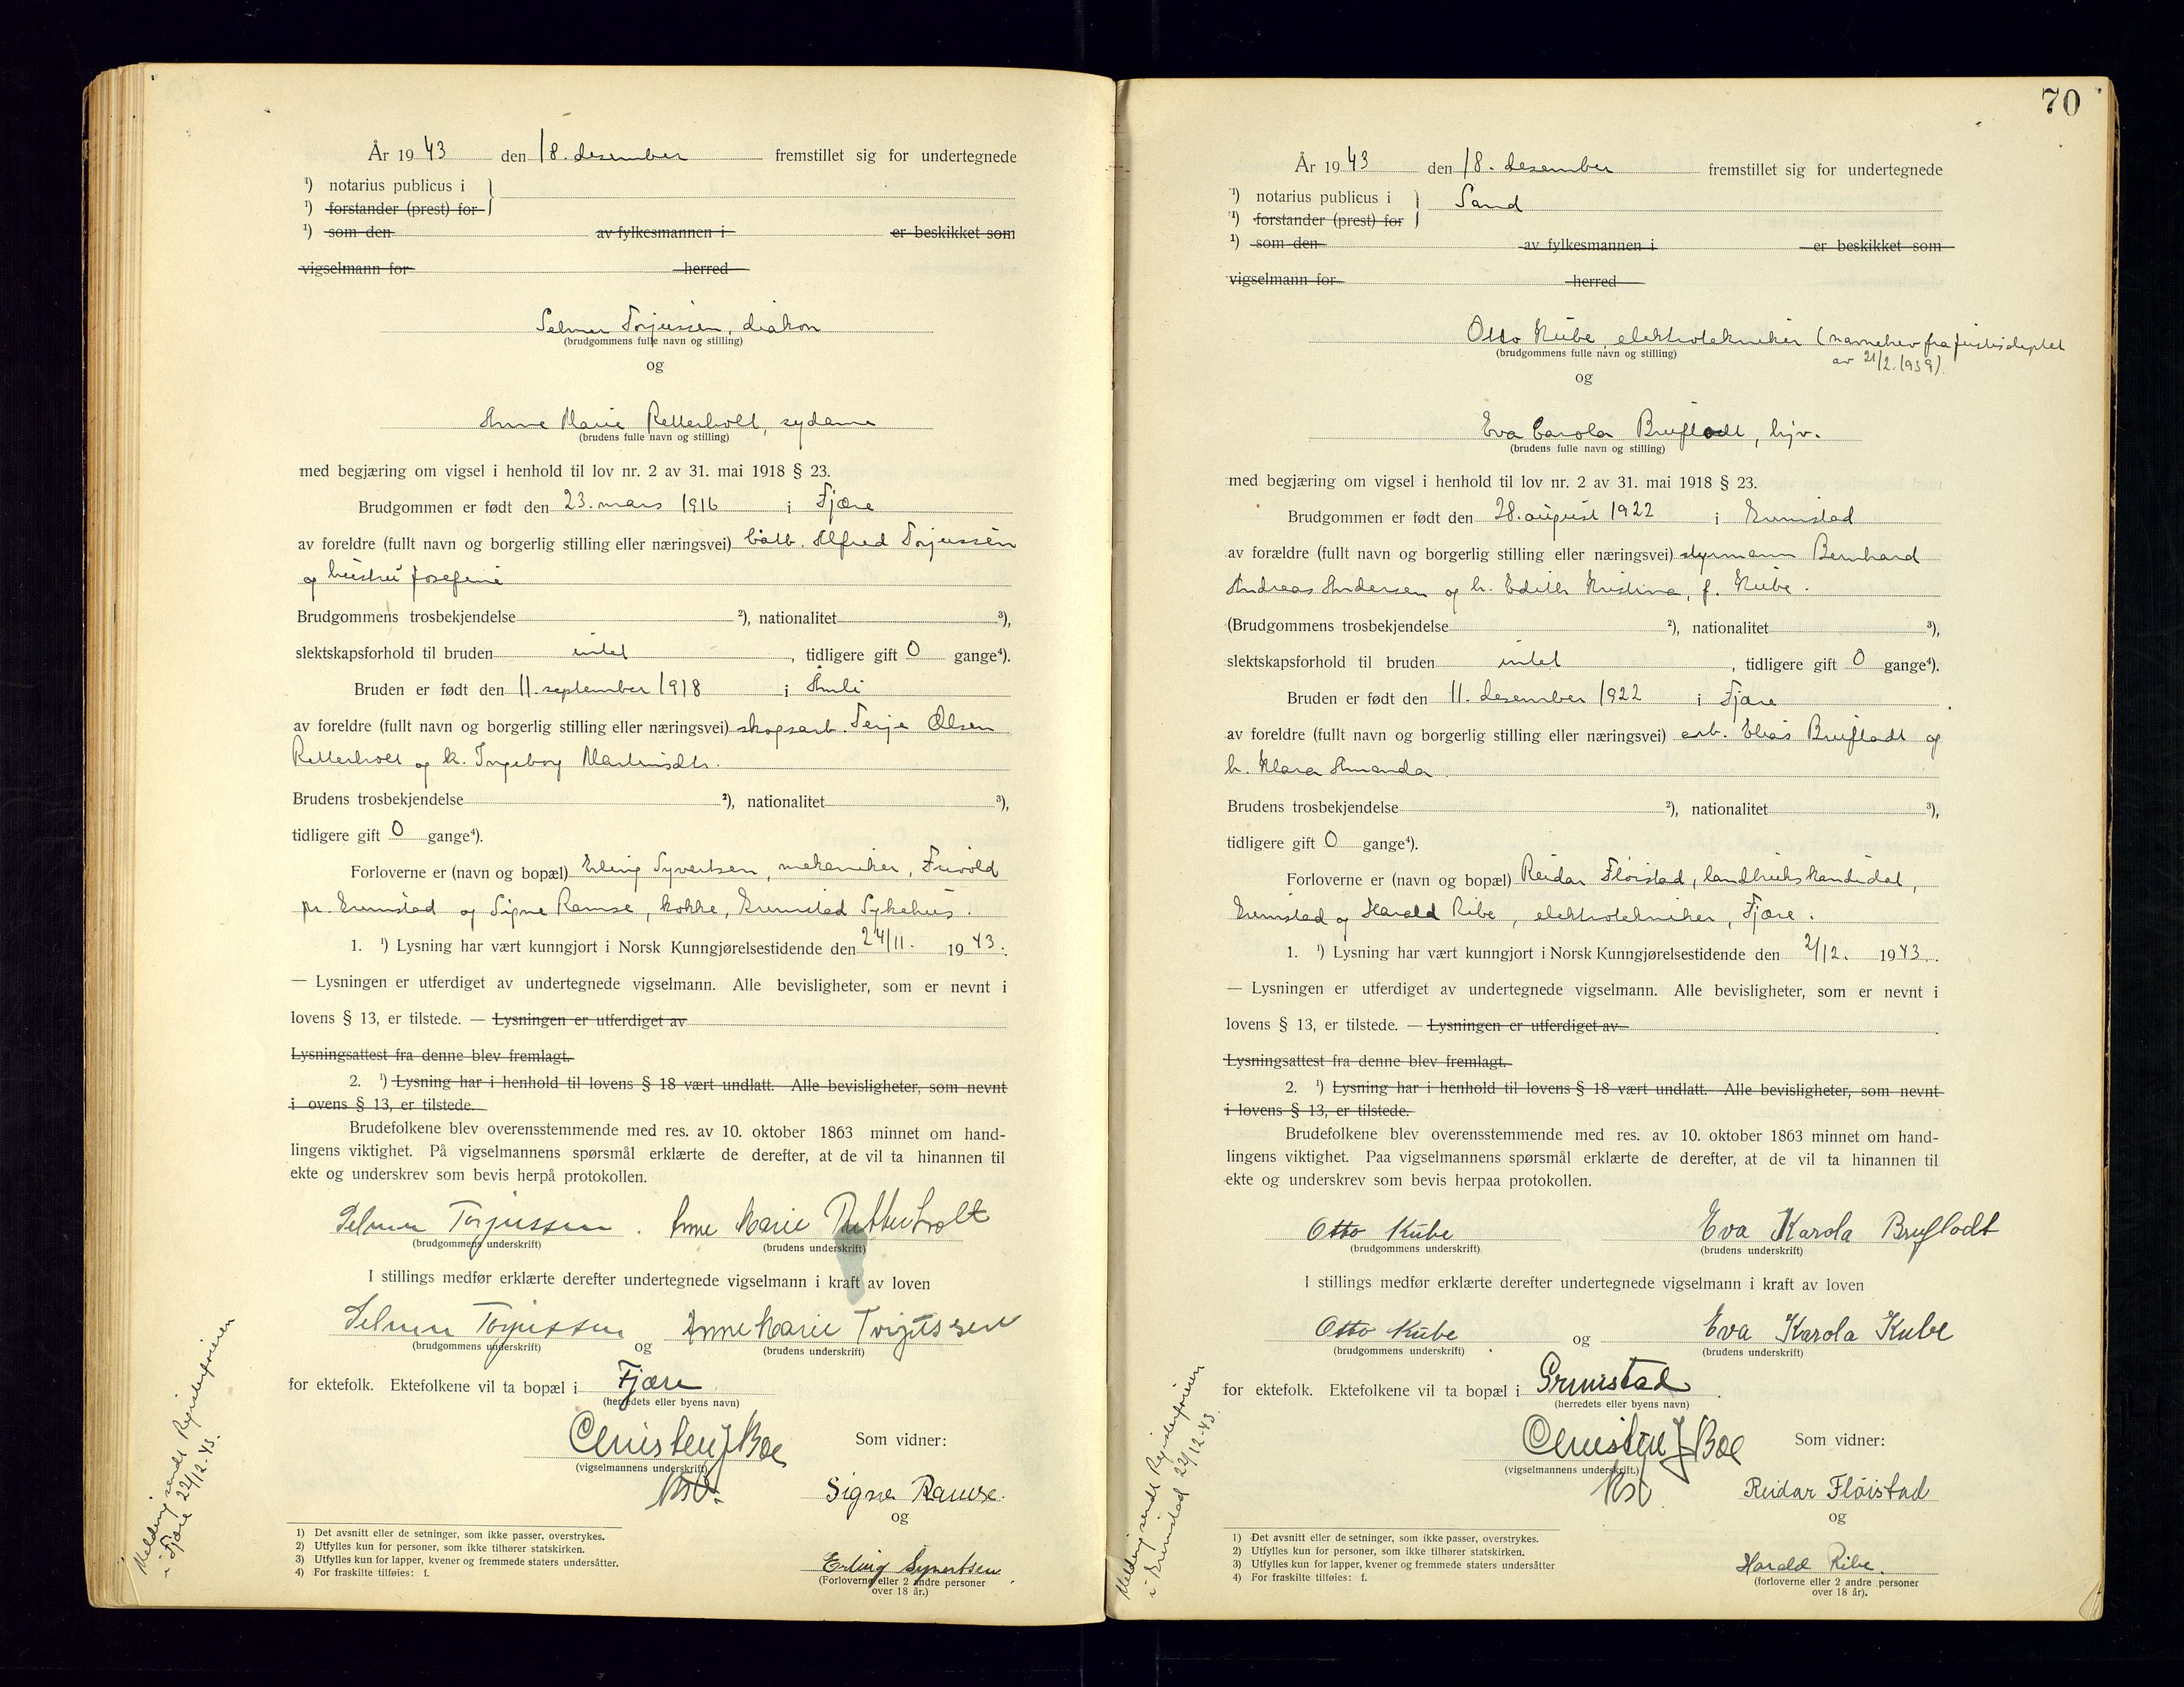 År 1943 den 18. desember fremstillet sig for undertegnede
¹) notarius publicus i
¹) forstander (prest) for
¹) som den av fylkesmannen i er beskikket som
vigselmann for herred
Selmer Torjussen, diakon
(brudgommens fulle navn og stilling)
og
Anne Marie Retterholt, sydame
(brudens fulle navn og stilling)
med begjæring om vigsel i henhold til lov nr. 2 av 31. mai 1918 § 23.
Brudgommen er født den 23. mars 1916 i Fjære
av foreldre (fullt navn og borgerlig stilling eller næringsvei) Alfred Torjussen
og hustru Josefine
Brudgommens trosbekjendelse ²), nationalitet ³),
slektskapsforhold til bruden intet, tidligere gift 0 gange⁴).
Bruden er født den 11. september 1918 i Åmli
av foreldre (fullt navn og borgerlig stilling eller næringsvei) skogsarb. Terje Olsen
Retterholt og h. Ingeborg Martinsdtr.
Brudens trosbekjendelse ²), nationalitet ³),
tidligere gift 0 gange⁴).
Forloverne er (navn og bopæl) Erling Syvertsen, mekaniker, Frivold
pr. Grimstad og Signe Ramse, kokke, Grimstad Sykehus.
1. ¹) Lysning har vært kunngjort i Norsk Kunngjørelsestidende den 24/11. 1943.
— Lysningen er utferdiget av undertegnede vigselmann. Alle bevisligheter, som er nevnt i
lovens § 13, er tilstede. — Lysningen er utferdiget av
Lysningsattest fra denne blev fremlagt.
2. ¹) Lysning har i henhold til lovens § 18 vært undlatt. Alle bevisligheter, som nevnt
i ovens § 13, er tilstede.
Brudefolkene blev overensstemmende med res. av 10. oktober 1863 minnet om hand-
lingens viktighet. På vigselmannens spørsmål erklærte de derefter, at de vil ta hinannen til
ekte og underskrev som bevis herpå protokollen.
Selmer Torjussen. Anne Marie Retterholt
(brudgommens underskrift) (brudens underskrift)
I stillings medfør erklærte derefter undertegnede vigselmann i kraft av loven
Selmer Torjussen og Anne Marie Torjussen
(brudgommens underskrift) (brudens underskrift)
for ektefolk. Ektefolkene vil ta bopæl i Fjære
(herredets eller byens navn)
Christen J Boe Som vidner:
(vigselmannens underskrift)
Signe Ramse.
og
Erling Syvertsen.
(Forloverne eller 2 andre personer
over 18 år.)
1) Det avsnitt eller de setninger, som ikke passer, overstrykes.
2) Utfylles kun for personer, som ikke tilhører statskirken.
3) Utfylles kun for lapper, kvener og fremmede staters undersåtter.
4) For fraskilte tilføies: f.
Melding sendt Registerføreren
i Fjære 22/12-43.
70
År 1943 den 18. desember fremstillet sig for undertegnede
¹) notarius publicus i Sand
¹) forstander (prest) for
¹) som den av fylkesmannen i er beskikket som
vigselmann for herred
Otto Kube, elektrotekniker (navnebrev fra justisdeptet
av 21/2.1939).
(brudgommens fulle navn og stilling)
og
Eva Carola Brufladt, hjv.
(brudens fulle navn og stilling)
med begjæring om vigsel i henhold til lov nr. 2 av 31. mai 1918 § 23.
Brudgommen er født den 28. august 1922 i Grimstad
av forældre (fullt navn og borgerlig stilling eller næringsvei) styrmann Bernhard
Andreas Andersen og h. Edith Kristina, f. Kube.
(Brudgommens trosbekjendelse ²), nationalitet ³),
slektskapsforhold til bruden intet, tidligere gift 0 gange⁴).
Bruden er født den 11. desember 1922 i Fjære
av foreldre (fullt navn og borgerlig stilling eller næringsvei) arb. Elias Brufladt og
h. Klara Amanda.
Brudens trosbekjendelse ²), nationalitet ³),
tidligere gift 0 gange⁴).
Forloverne er (navn og bopæl) Reidar Fløistad, landbrukskandidat,
Grimstad og Harald Ribe, elektrotekniker, Fjære.
1. ¹) Lysning har vært kunngjort i Norsk Kunngjørelsestidende den 2/12. 1943.
— Lysningen er utferdiget av undertegnede vigselmann. Alle bevisligheter, som er nevnt i
lovens § 13, er tilstede. — Lysningen er utferdiget av
Lysningsattest fra denne blev fremlagt.
2. ¹) Lysning har i henhold til lovens § 18 vært undlatt. Alle bevisligheter, som nevnt
i lovens § 13, er tilstede.
Brudefolkene blev overensstemmende med res. av 10. oktober 1863 minnet om hand-
lingens viktighet. Paa vigselmannens spørsmål erklærte de derefter, at de vil ta hinannen til
ekte og underskrev som bevis herpaa protokollen.
Otto Kube Eva Karola Brufladt
(brudgommens underskrift) (brudens underskrift)
I stillings medfør erklærte derefter undertegnede vigselmann i kraft av loven
Otto Kube og Eva Karola Kube
(brudgommens underskrift) (brudens underskrift)
for ektefolk. Ektefolkene vil ta bopæl i Grimstad.
(herredets eller byens navn)
Christen J Boe Som vidner:
(vigselmannens underskrift.)
Reidar Fløistad
og
Harald Ribe.
(forloverne eller 2 andre personer
over 18 år).
1) Det avsnitt eller de setninger, som ikke passer, overstrykes.
2) Utfylles kun for personer, som ikke tilhører statskirken.
3) Utfylles kun for lapper, kvener og fremmede staters undersåtter
4) For fraskilte tilføies: f.
Melding sendt Registerføreren
i Grimstad 22/12-43.